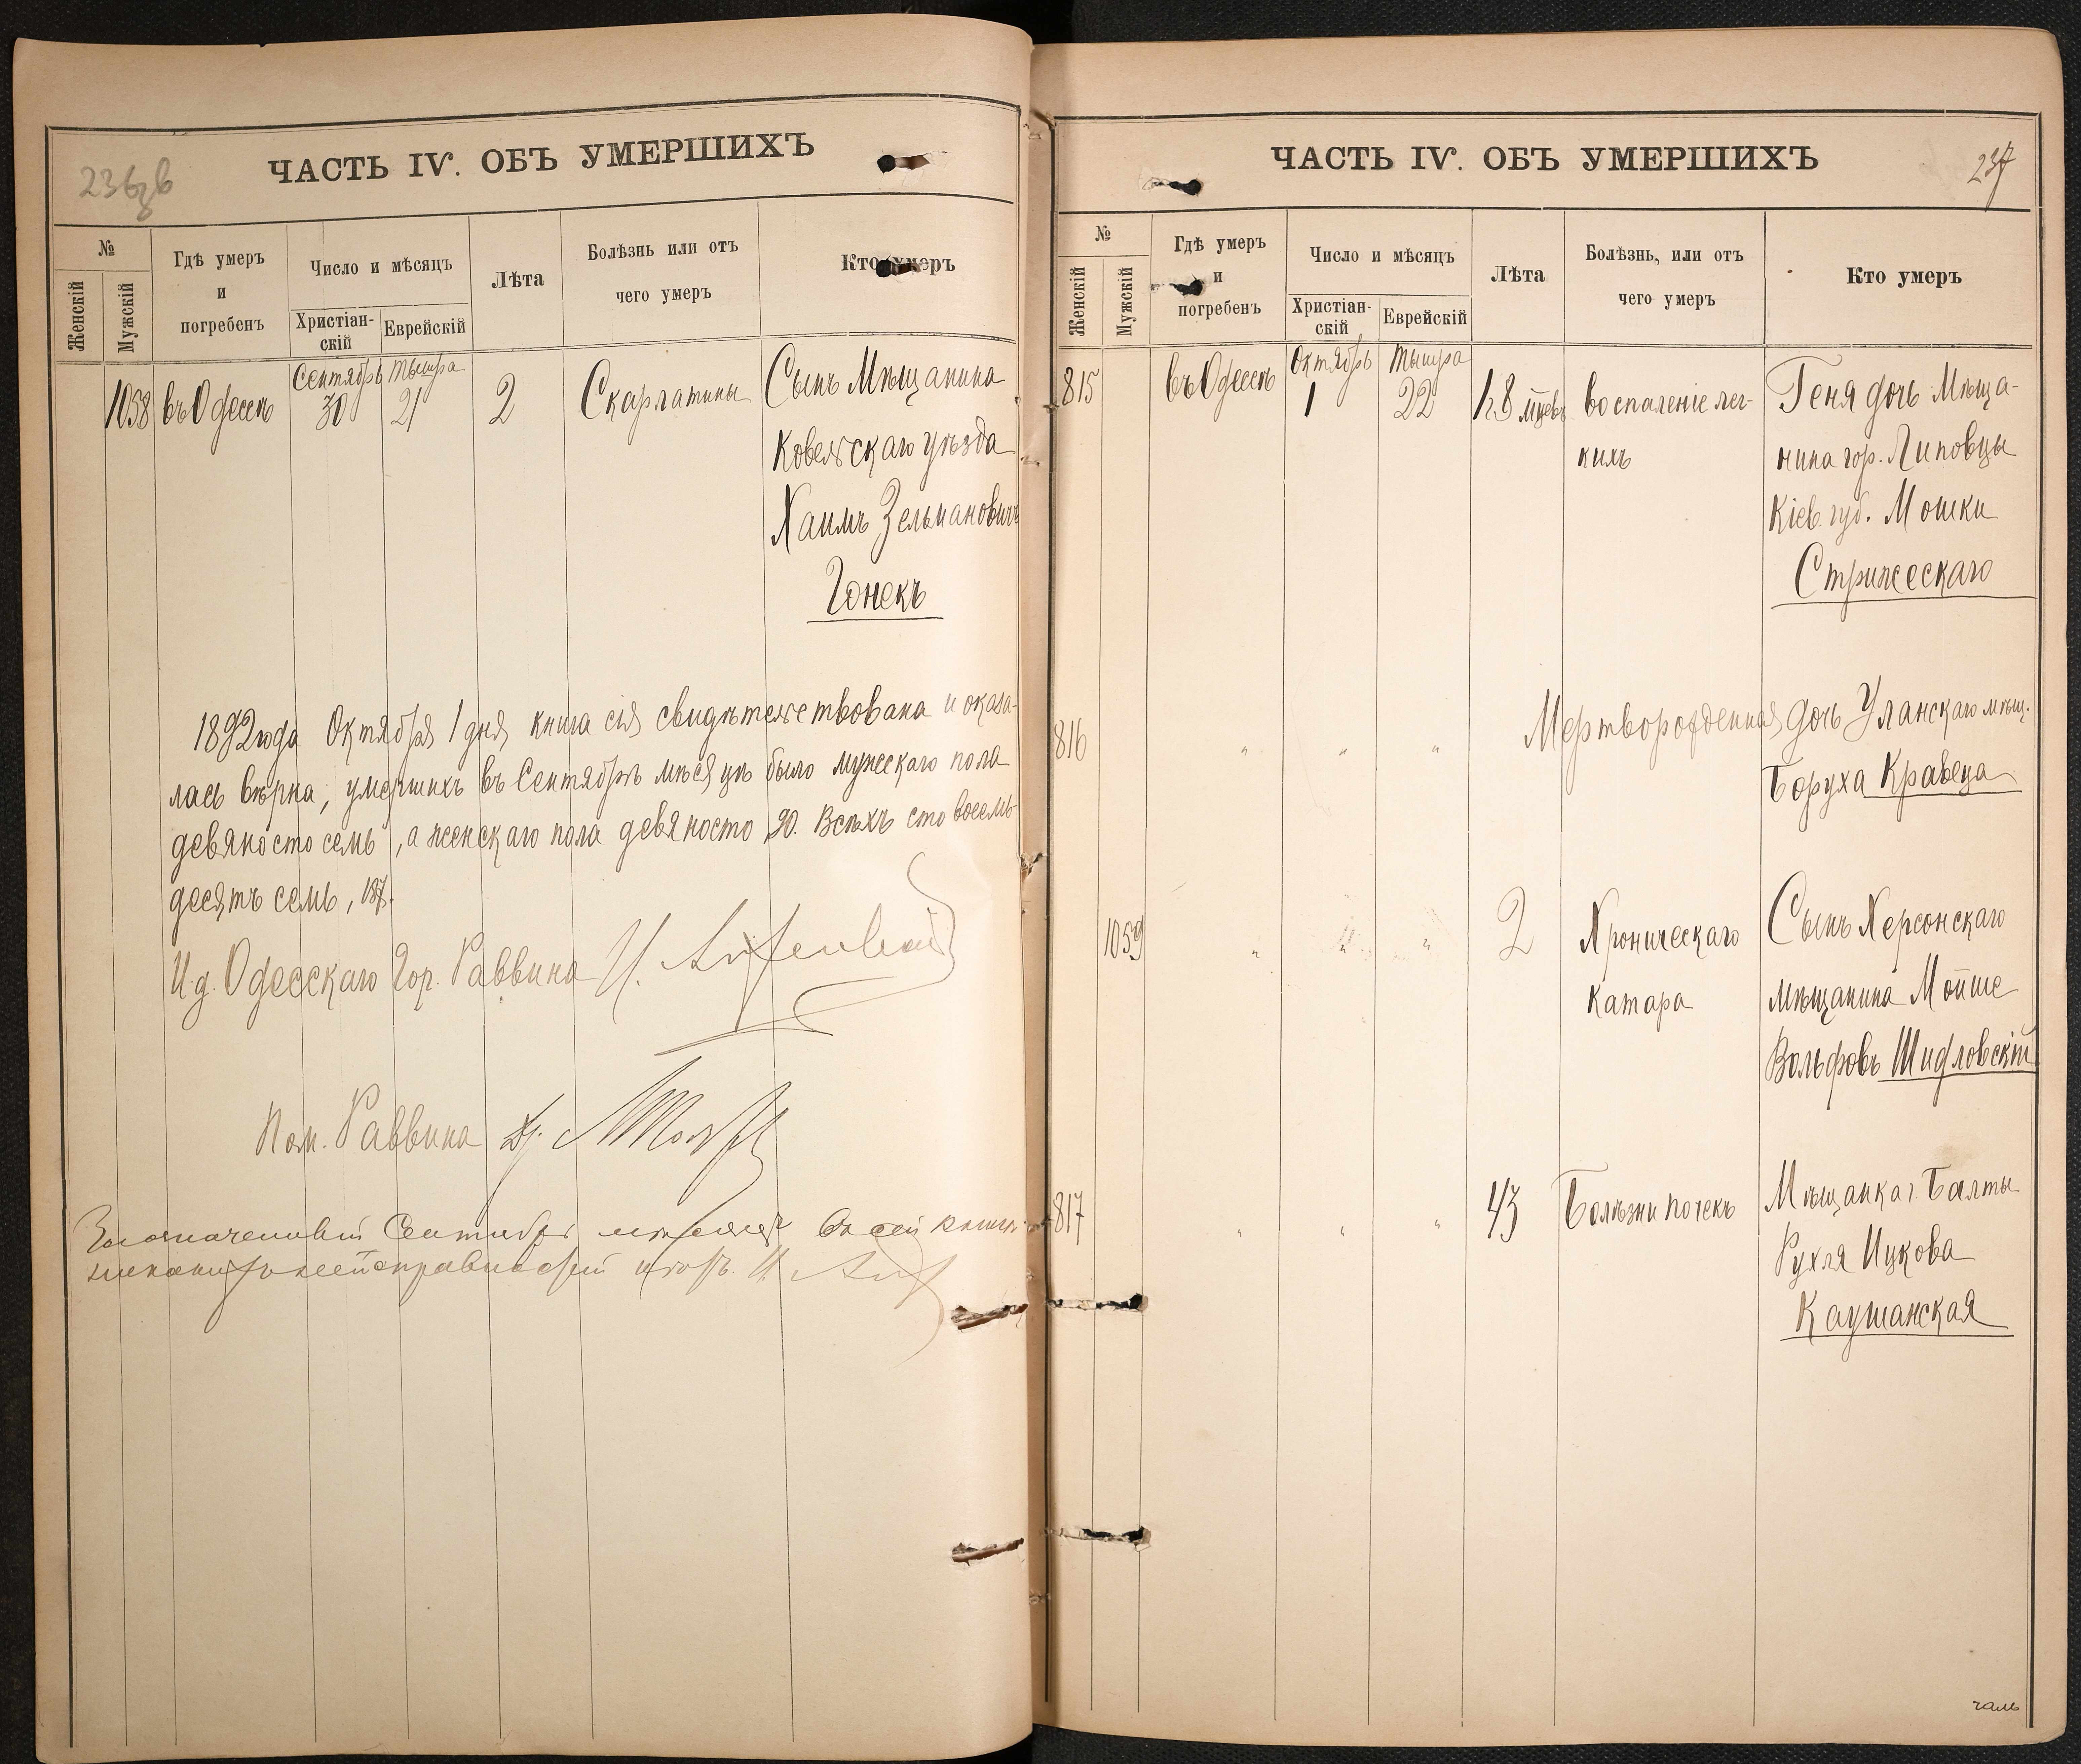 236 об
ЧАСТЬ IV. ОБЪ УМЕРШИХЪ
№
Женскій
Мужскій
Гдѣ умеръ
и
погребенъ
Число и мѣсяцъ
Христіан-
скій
Еврейскій
Лѣта
Болѣзнь или отъ
чего умеръ
Кто умеръ
Сентябрь Тышра
1058 въ Одессѣ 30 21 2 Скарлатины Сынъ Мѣщанина
Ковельскаго уѣзда
Хаимъ Зельмановичъ
Гонекъ
1892 года Октября 1 дня книга сія свидѣтельствована и оказа-
лась вѣрна, умершихъ въ Сентябрѣ мѣсяцѣ было мужскаго пола
девяносто семь, а женскаго пола девяносто 90. Всѣхъ сто восемь-
десятъ семь, 187.
И.д. Одесскаго Гор. Раввина
Пом. Раввина
Сентябрь въ сей книгѣ
ЧАСТЬ IV. ОБЪ УМЕРШИХЪ
237
№
Женскій
Мужскій
Гдѣ умеръ
и
погребенъ
Число и мѣсяцъ
Христіан-
скій
Еврейскій
Лѣта
Болѣзнь, или отъ
чего умеръ
Кто умеръ
Октябрь Тышра
815 въ Одессѣ 1 22 8 мцевъ воспаленіе лег- Геня дочь Мѣща-
кихъ нина гор. Липовцы
Кіев. губ. Мошки
Стрижескаго
816 " " " Мертворожденная дочь Уланскаго мѣщ.
Боруха Кравеца
1059 " " " 2 Хроническаго Сынъ Херсонскаго
катара мѣщанина Мойше
Вольфовъ Шидловскій
817 " " " 43 Болѣзни почекъ Мѣщанка г. Балты
Рухля Ицкова
Каушанская